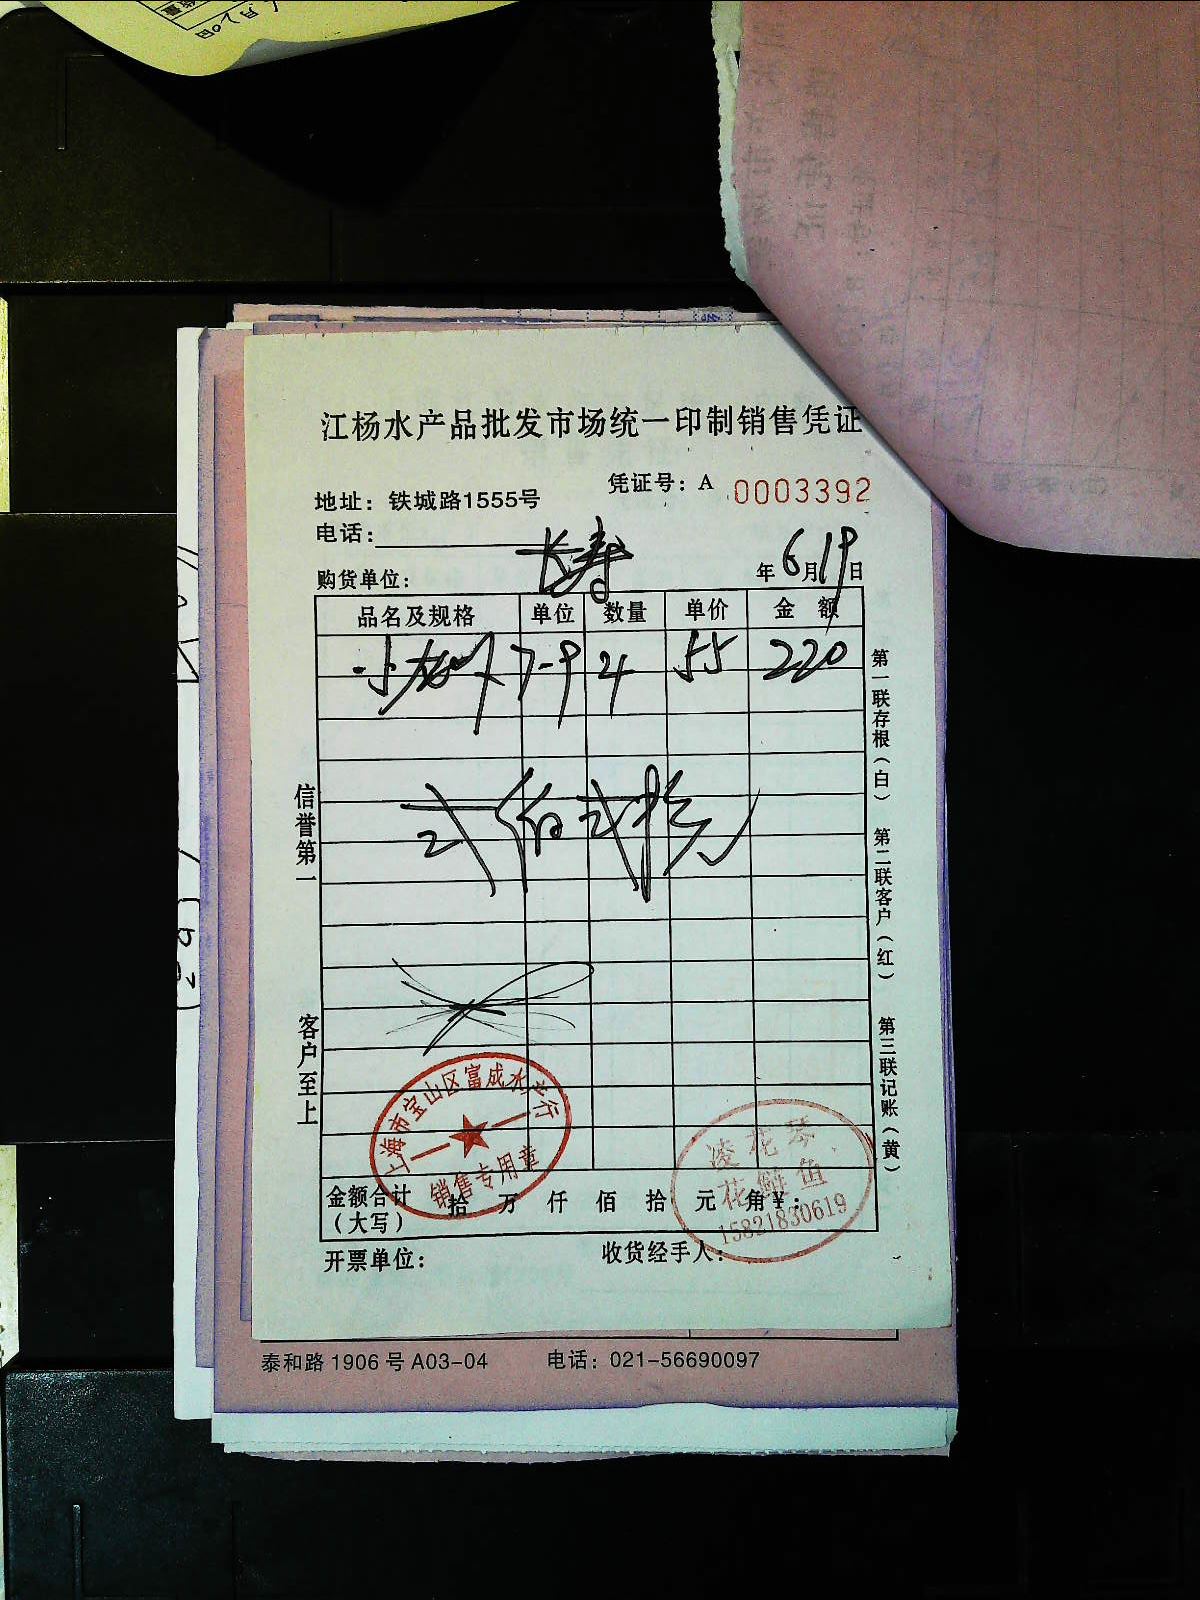 江杨水产品批发市场统一印制销售凭证
凭证号：A 0003392
地址：铁城路1555号
电话：
购货单位： 长寿 年 6月19日
品名及规格 单位 数量 单价 金 额
小龙虾 7-9 4 55 220
弍佰弍拾元
信誉第一
客户至上
第一联存根（白）
第二联客户（红）
第三联记账（黄）
上海市宝山区富成水产行
销售专用章
凌花琴
花鲢鱼
15821830619
金额合计（大写） 拾 万 仟 佰 拾 元 角 ¥：
开票单位：
收货经手人：
泰和路 1906 号 A03-04 电话：021-56690097